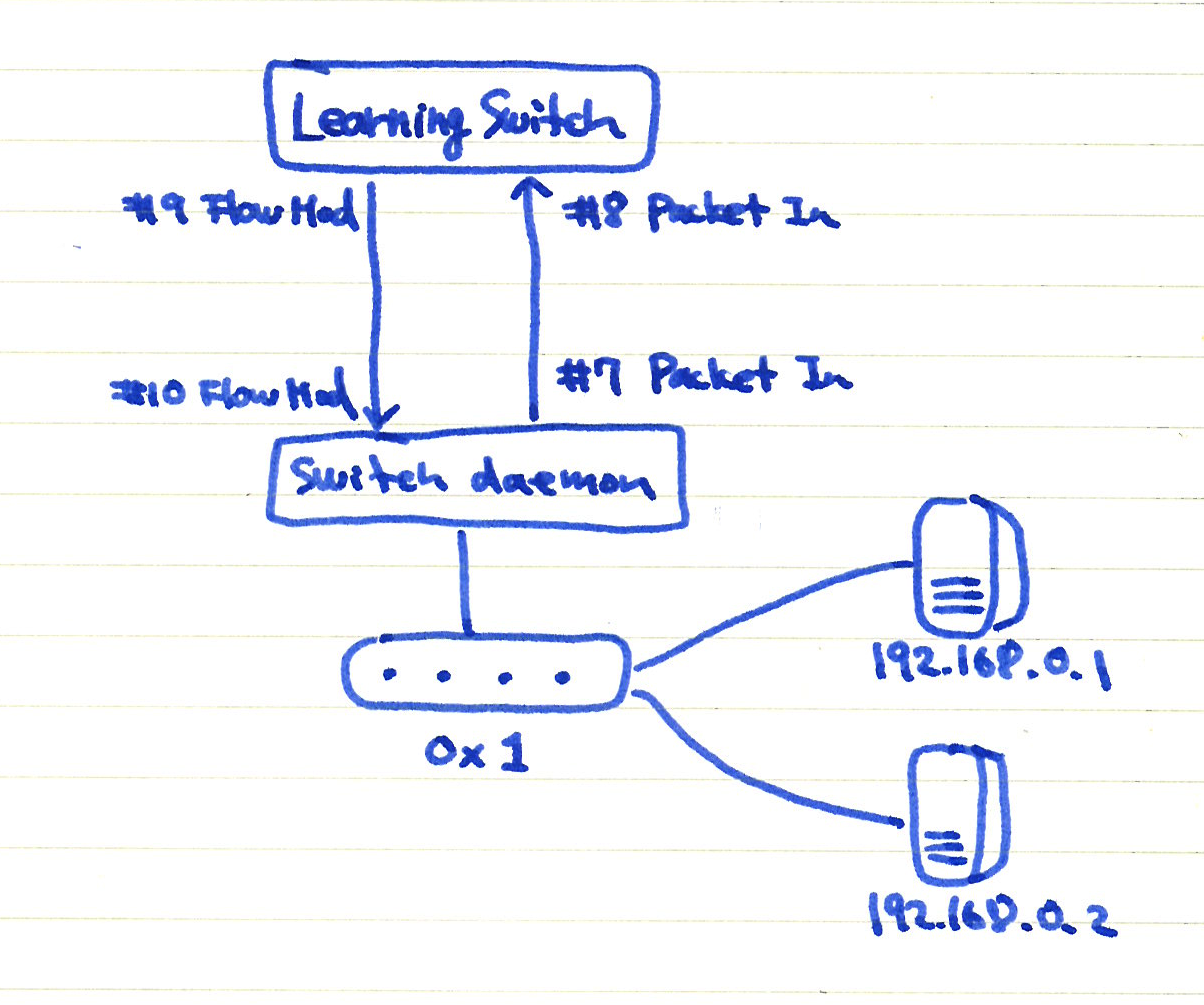 Learning Switch
#9 Flow Mod
#8 Packet In
#10 Flow Mod
#7 Packet In
Switch daemon
192.168.0.1
0x1
192.168.0.2